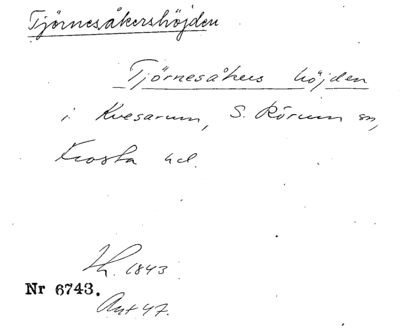 Tjörnesåkershöjden
Tjörnesåkers höjden
i Kvesarum, S. Rörum sn,
Frosta hd.
Lh. 1843
Nr 6743.
Ant 47.